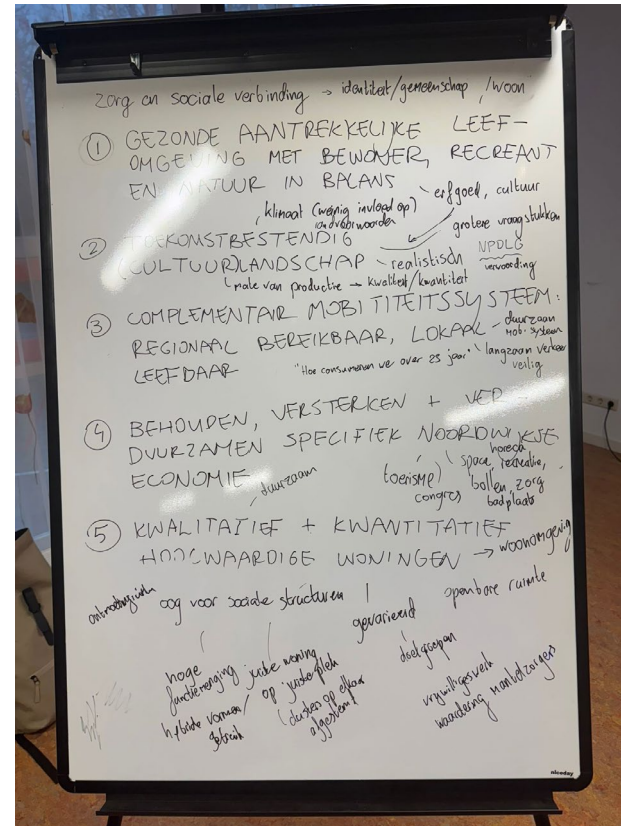 zorg en sociale verbinding → identiteit/gemeenschap /woon
① GEZONDE AANTREKKELIJKE LEEF-
OMGEVING MET BEWONER, RECREANT
EN NATUUR IN BALANS
erfgoed, cultuur
klimaat (weinig invloed op)
randvoorwaarden
grotere vraagstukken
② TOEKOMSTBESTENDIG
(CULTUUR)LANDSCHAP - realistisch
NPDLG
verwoording
mate van productie → kwaliteit/kwantiteit
③ COMPLEMENTAIR MOBITITEITSSYSTEEM:
REGIONAAL BEREIKBAAR, LOKAAL
LEEFBAAR
duurzaam
mob. systeem
"Hoe consumeren we over 25 jaar"
langzaam verkeer
veilig
④ BEHOUDEN, VERSTERKEN + VER-
DUURZAMEN SPECIFIEK NOORDWIJKSE
ECONOMIE
duurzaam
toerisme)
congres
horeca,
space, recreatie,
bollen, zorg
badplaats
⑤ KWALITATIEF + KWANTITATIEF
HOOGWAARDIGE WONINGEN → woonomgeving
oog voor sociale structuren
gevarieerd
openbare ruimte
doelgroepen
hoge
functiemenging
hybride vormen/
gebruik
juiste woning
op juiste plek
clusters op elkaar
afgestemd
vrijwilligerswerk
waardering mantelzorgers
niceday